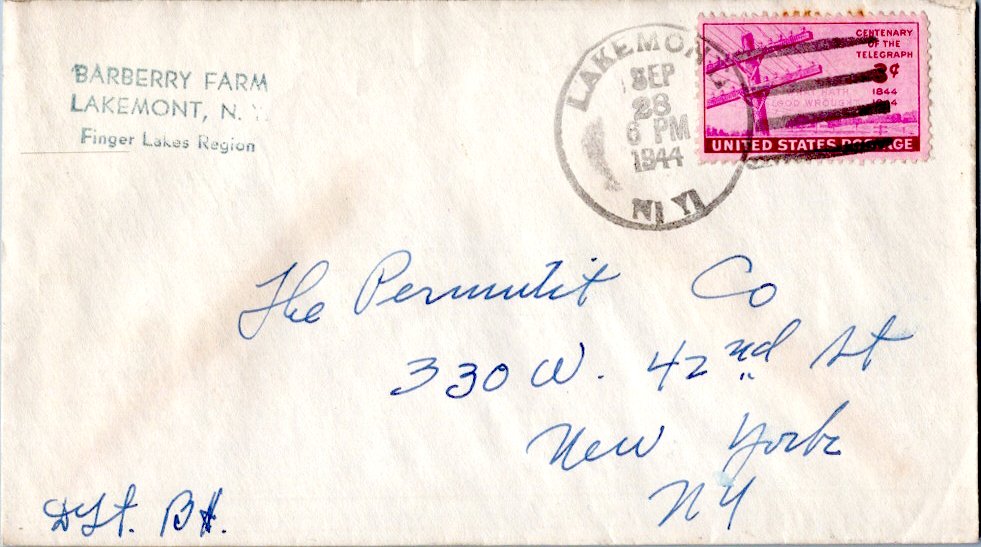 BARBERRY FARM
LAKEMONT, N. Y.
Finger Lakes Region
LAKEMONT
SEP
28
6 PM
1944
N. Y.
CENTENARY
OF THE
TELEGRAPH
3¢
1844
1944
WHAT HATH
GOD WROUGHT
UNITED STATES POSTAGE
The Permutit Co
330 W. 42nd St
New York
NY